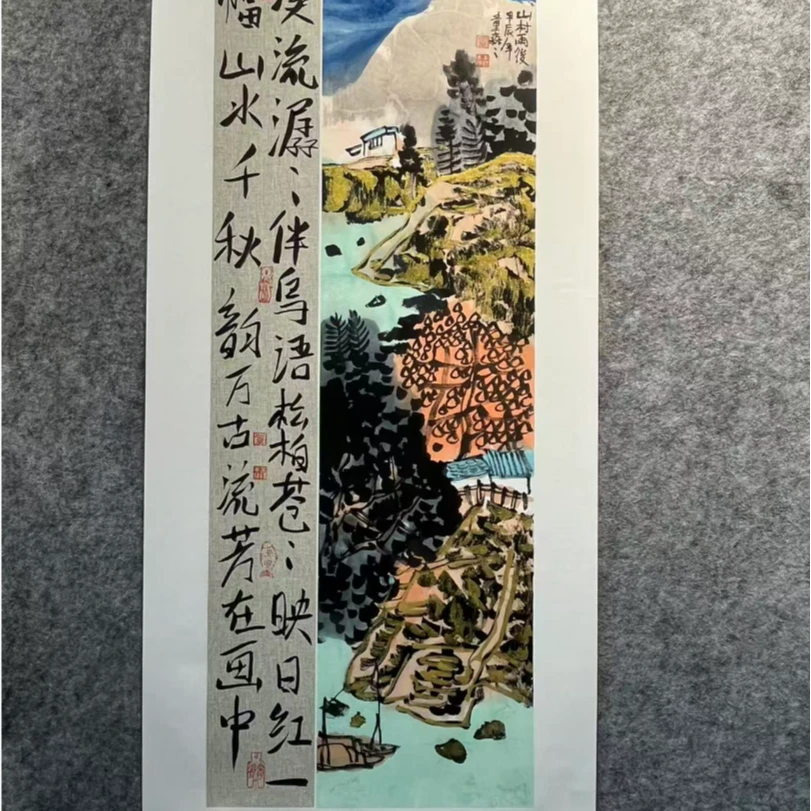 山村雨後
甲辰年
流潺〻伴鸟语松柏苍〻映日红一
幅山水千秋韵万古流芳在画中